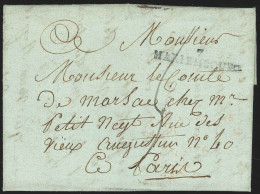 Monsieur
7
MARIEMBOURG
Monsieur le Comte
de marsac chez mr
Petit Negt Rue des
vieux augustin no 40
a Paris